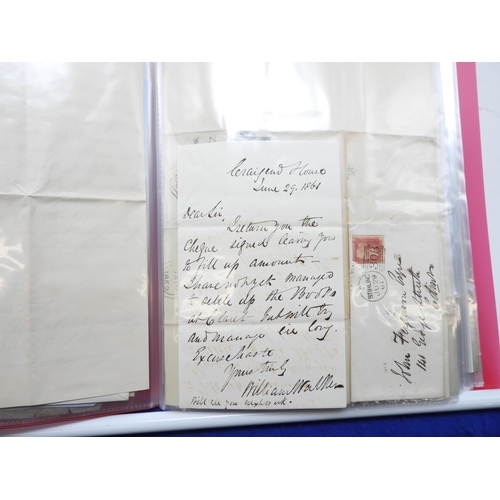 Craigend House
June 29. 1861
Dear Sir,
I return you the
Cheque signed leaving you
to fill up amount —
I have not yet managed
to settle up the Books
at but will try
and manage ere long.
Excuse haste
Yours truly
William Walker
Will see you next week.
John Esqre
George Street